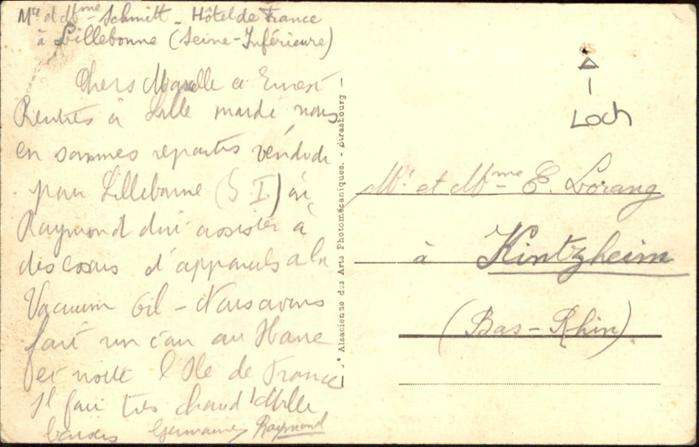 Mr et Mme Schmitt - Hôtel de France
à Lillebonne (Seine-Inférieure)
Chers Marcelle et Ernest
Rentrés à Lille mardi nous
en sommes repartis vendredi
pour Lillebonne (S I) où
Raymond doit assister à
des cours d'appareils à la
Vacuum Oil - Nous avons
fait un saut au Havre
et visité l'Ile de France
Il fait très chaud. Mille
baisers Germaine Raymond
Alsacienne des Arts Photomécaniques. - Strasbourg
Loch
Mr et Mme E. Lorang
à Kintzheim
(Bas-Rhin)